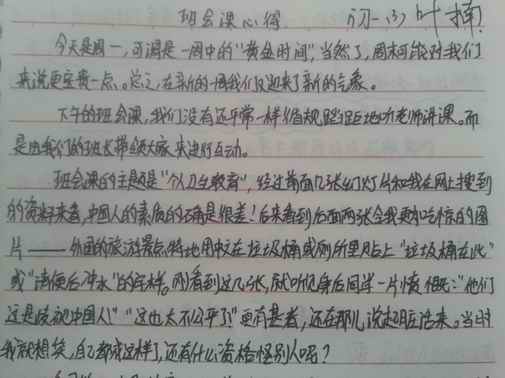 班会课心得 初一(3) 叶楠
今天是周一,可谓是一周中的“黄金时间”,当然了,周末可能对我们
来说更宝贵一点。总之,在新的一周我们又迎来了新的气象。
下午的班会课,我们没有还平常一样循规蹈矩地听老师讲课。而
是由我们的班长带领大家来进行互动。
班会课的主题是“个人卫生教育”,经过前面几张幻灯片和我在网上搜到
的资料来看,中国人的素质的确是很差!后来看到后面两张令我更加吃惊的图
片——外国的旅游景点特地用中文在垃圾桶或厕所里贴上“垃圾桶在此”
或“请便后冲水”的字样。刚看到这几张,就听见身后同学一片愤慨:“他们
这是歧视中国人”“这也太不公平了”更有甚者,还在那儿说起脏话来。当时
我就想笑,自己都成这样了,还有什么资格怪别人呢?